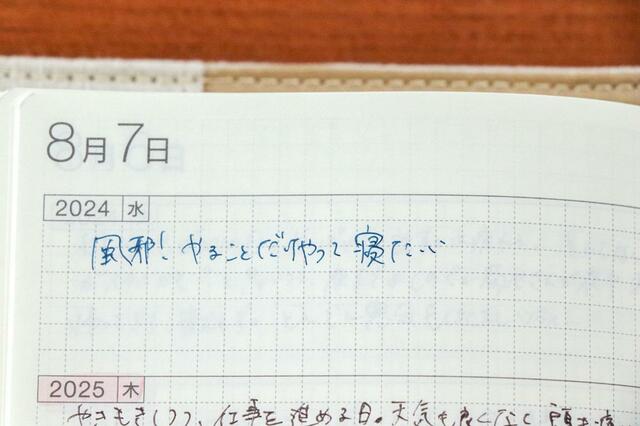 8月7日
2024 水
風邪!やることだけやって寝たい
2025 木
やきもきしつつ、仕事を進める日。天気も良くなく頭も痛